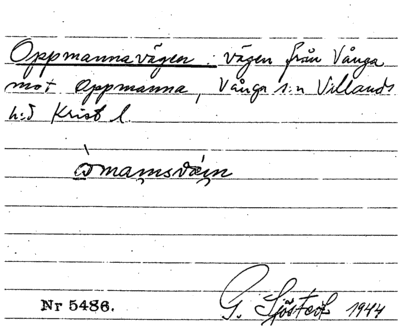 Oppmannavägen: vägen från Vånga
mot Oppmanna, Vånga s:n Villands
h:d Krist l.
Nr 5486.
G. Sjöstedt 1944